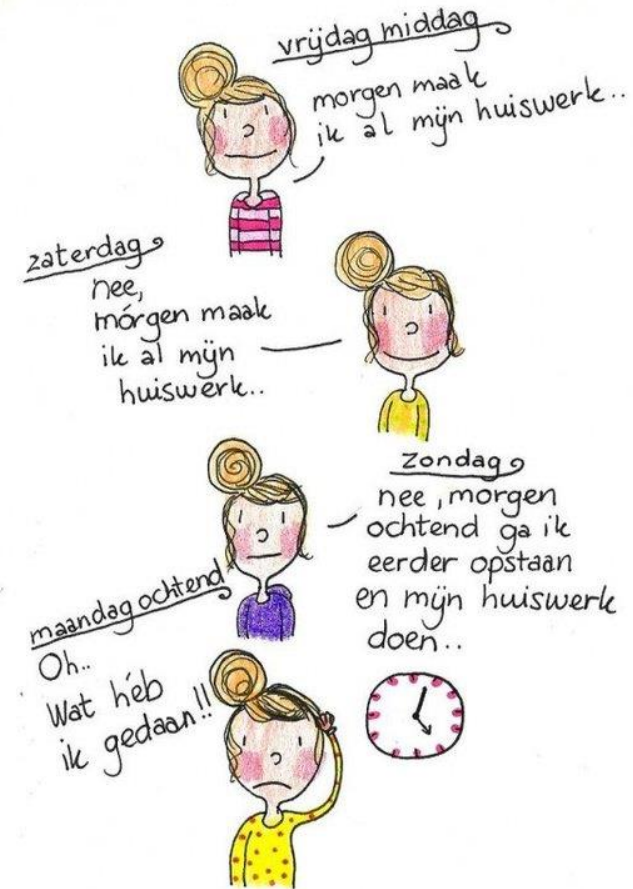 vrijdag middag
morgen maak
ik al mijn huiswerk..
zaterdag
nee,
mórgen maak
ik al mijn
huiswerk..
zondag
nee, morgen
ochtend ga ik
eerder opstaan
en mijn huiswerk
doen..
maandag ochtend
Oh..
Wat héb
ik gedaan!!